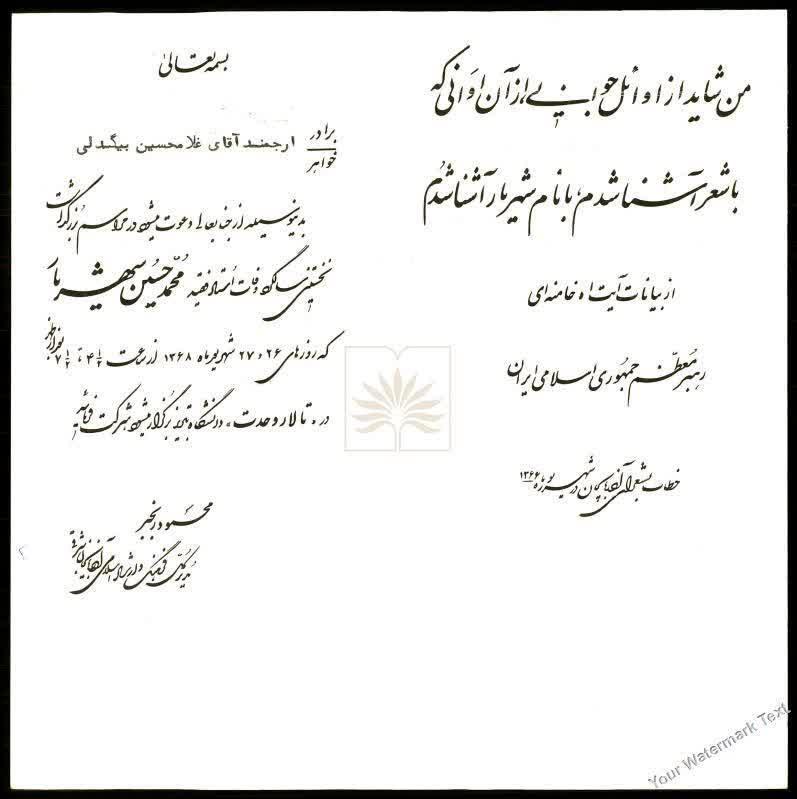 من شاید از اوائل جوانیم از آن اوانی که
با شعر آشنا شدم، با نام شهریار آشنا شدم
از بیانات آیت اله خامنه‌ای
رهبر معظم جمهوری اسلامی ایران
خطاب بشعرای آذربایجان در شهریورماه ۱۳۶۶
بسمه تعالی
برادر
خواهر
ارجمند آقای غلامحسین بیگدلی
بدینوسیله از جنابعالی دعوت میشود در مراسم بزرگداشت
نخستین سالگرد وفات استاد فقید محمدحسین شهریار
که روزهای ۲۶ و ۲۷ شهریورماه ۱۳۶۸ از ساعت ۴/۵ تا ۷/۵ بعدازظهر
در «تالار وحدت» دانشگاه تبریز برگزار میشود شرکت فرمائید
محمود رنجبر
مدیر کل فرهنگ و ارشاد اسلامی آذربایجانشرقی
Your Watermark Text